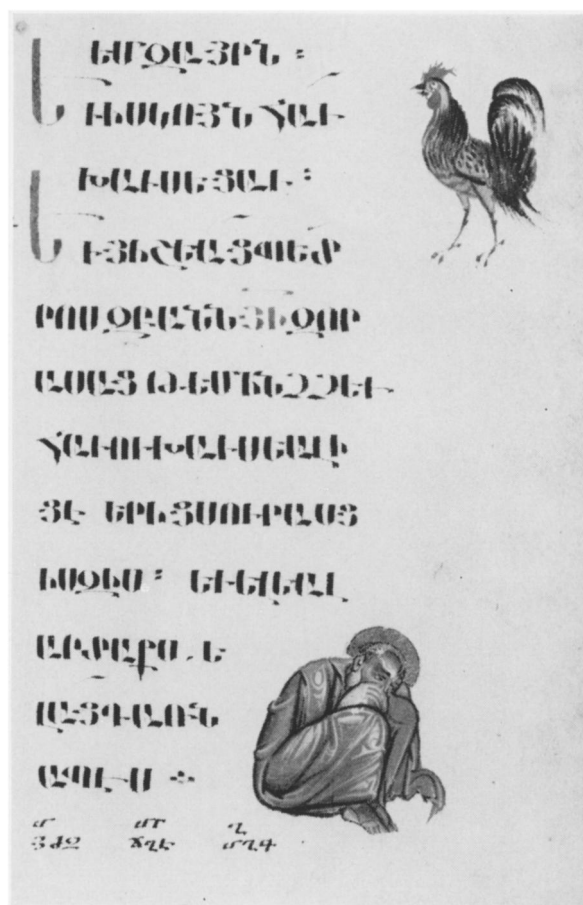 ԵՄ ԶԱՅՐՆ ։
ԵՒ ԻՍԿՈՅՆ ՀԱՒ
ԽԱՒՍԵՑԱՒ ։
ԵՒ ՅԻՇԵԱՑ ՊԵՏ
ՐՈՍ ԶԲԱՆՆ ՅԻ ԶՈՐ
ԱՍԱՑ ԹԵ ՄԻՆՉՉԵՒ
ՀԱՒՈՒ ԽԱՒՍԵԱԼ Ի
ՑԷ ԵՐԻՑՍ ՈՒՐԱՍՑ
ԻՍ ԶԻՍ ։ ԵՒ ԵԼԵԱԼ
ԱՐՏԱՔՍ . Ե
ԼԱՑ ԴԱՌՆ
ԱՊԷՍ ։
մ մր ղ
ՅԺԶ ՃՂԷ ՄՂԳ